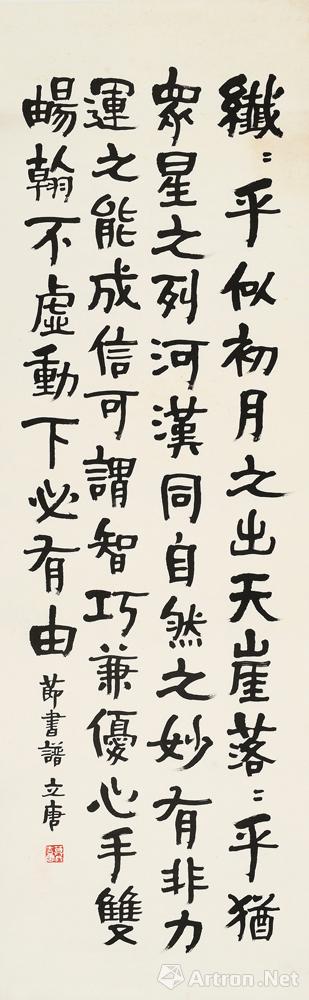 纖〻乎似初月之出天崖落〻乎猶
眾星之列河漢同自然之妙有非力
運之能成信可謂智巧兼優心手雙
暢翰不虛動下必有由
節書譜 立唐
Artron.Net